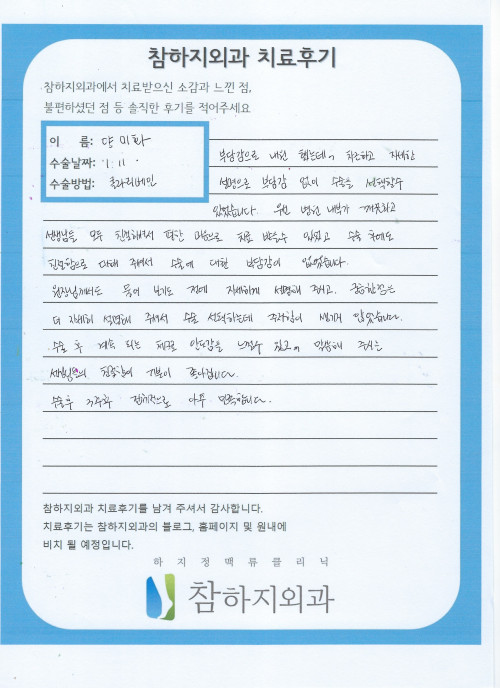 참하지외과 치료후기
참하지외과에서 치료받으신 소감과 느낀 점,
불편하셨던 점 등 솔직한 후기를 적어주세요
이 름: 양미화
수술날짜: 1.11.
수술방법: 클라리베인
부담감으로 내원 했는데 친근하고 자세한
설명으로 부담감 없이 수술을 선택할수
있었습니다. 우선 병원 내부가 깨끗하고
선생님들 모두 친절해서 편한 마음으로 치료 받을수 있었고 수술 후에도
친절함으로 대해 주셔서 수술에 대한 부담감이 없었습니다.
원장님께서도 묻어 보기도 전에 자세하게 설명해 주시고, 궁금한점은
더 자세히 설명해 주셔서 수술 선택하는데 주저함이 생기지 않았습니다.
수술 후 계속 되는 치료로 안도감을 느낄수 있고 맞이해 주시는
선생님의 친절함에 기분이 좋아집니다.
수술후 3주차 전체적으로 아주 만족합니다.
참하지외과 치료후기를 남겨 주셔서 감사합니다.
치료후기는 참하지외과의 블로그, 홈페이지 및 원내에
비치 될 예정입니다.
하지정맥류클리닉
참하지외과